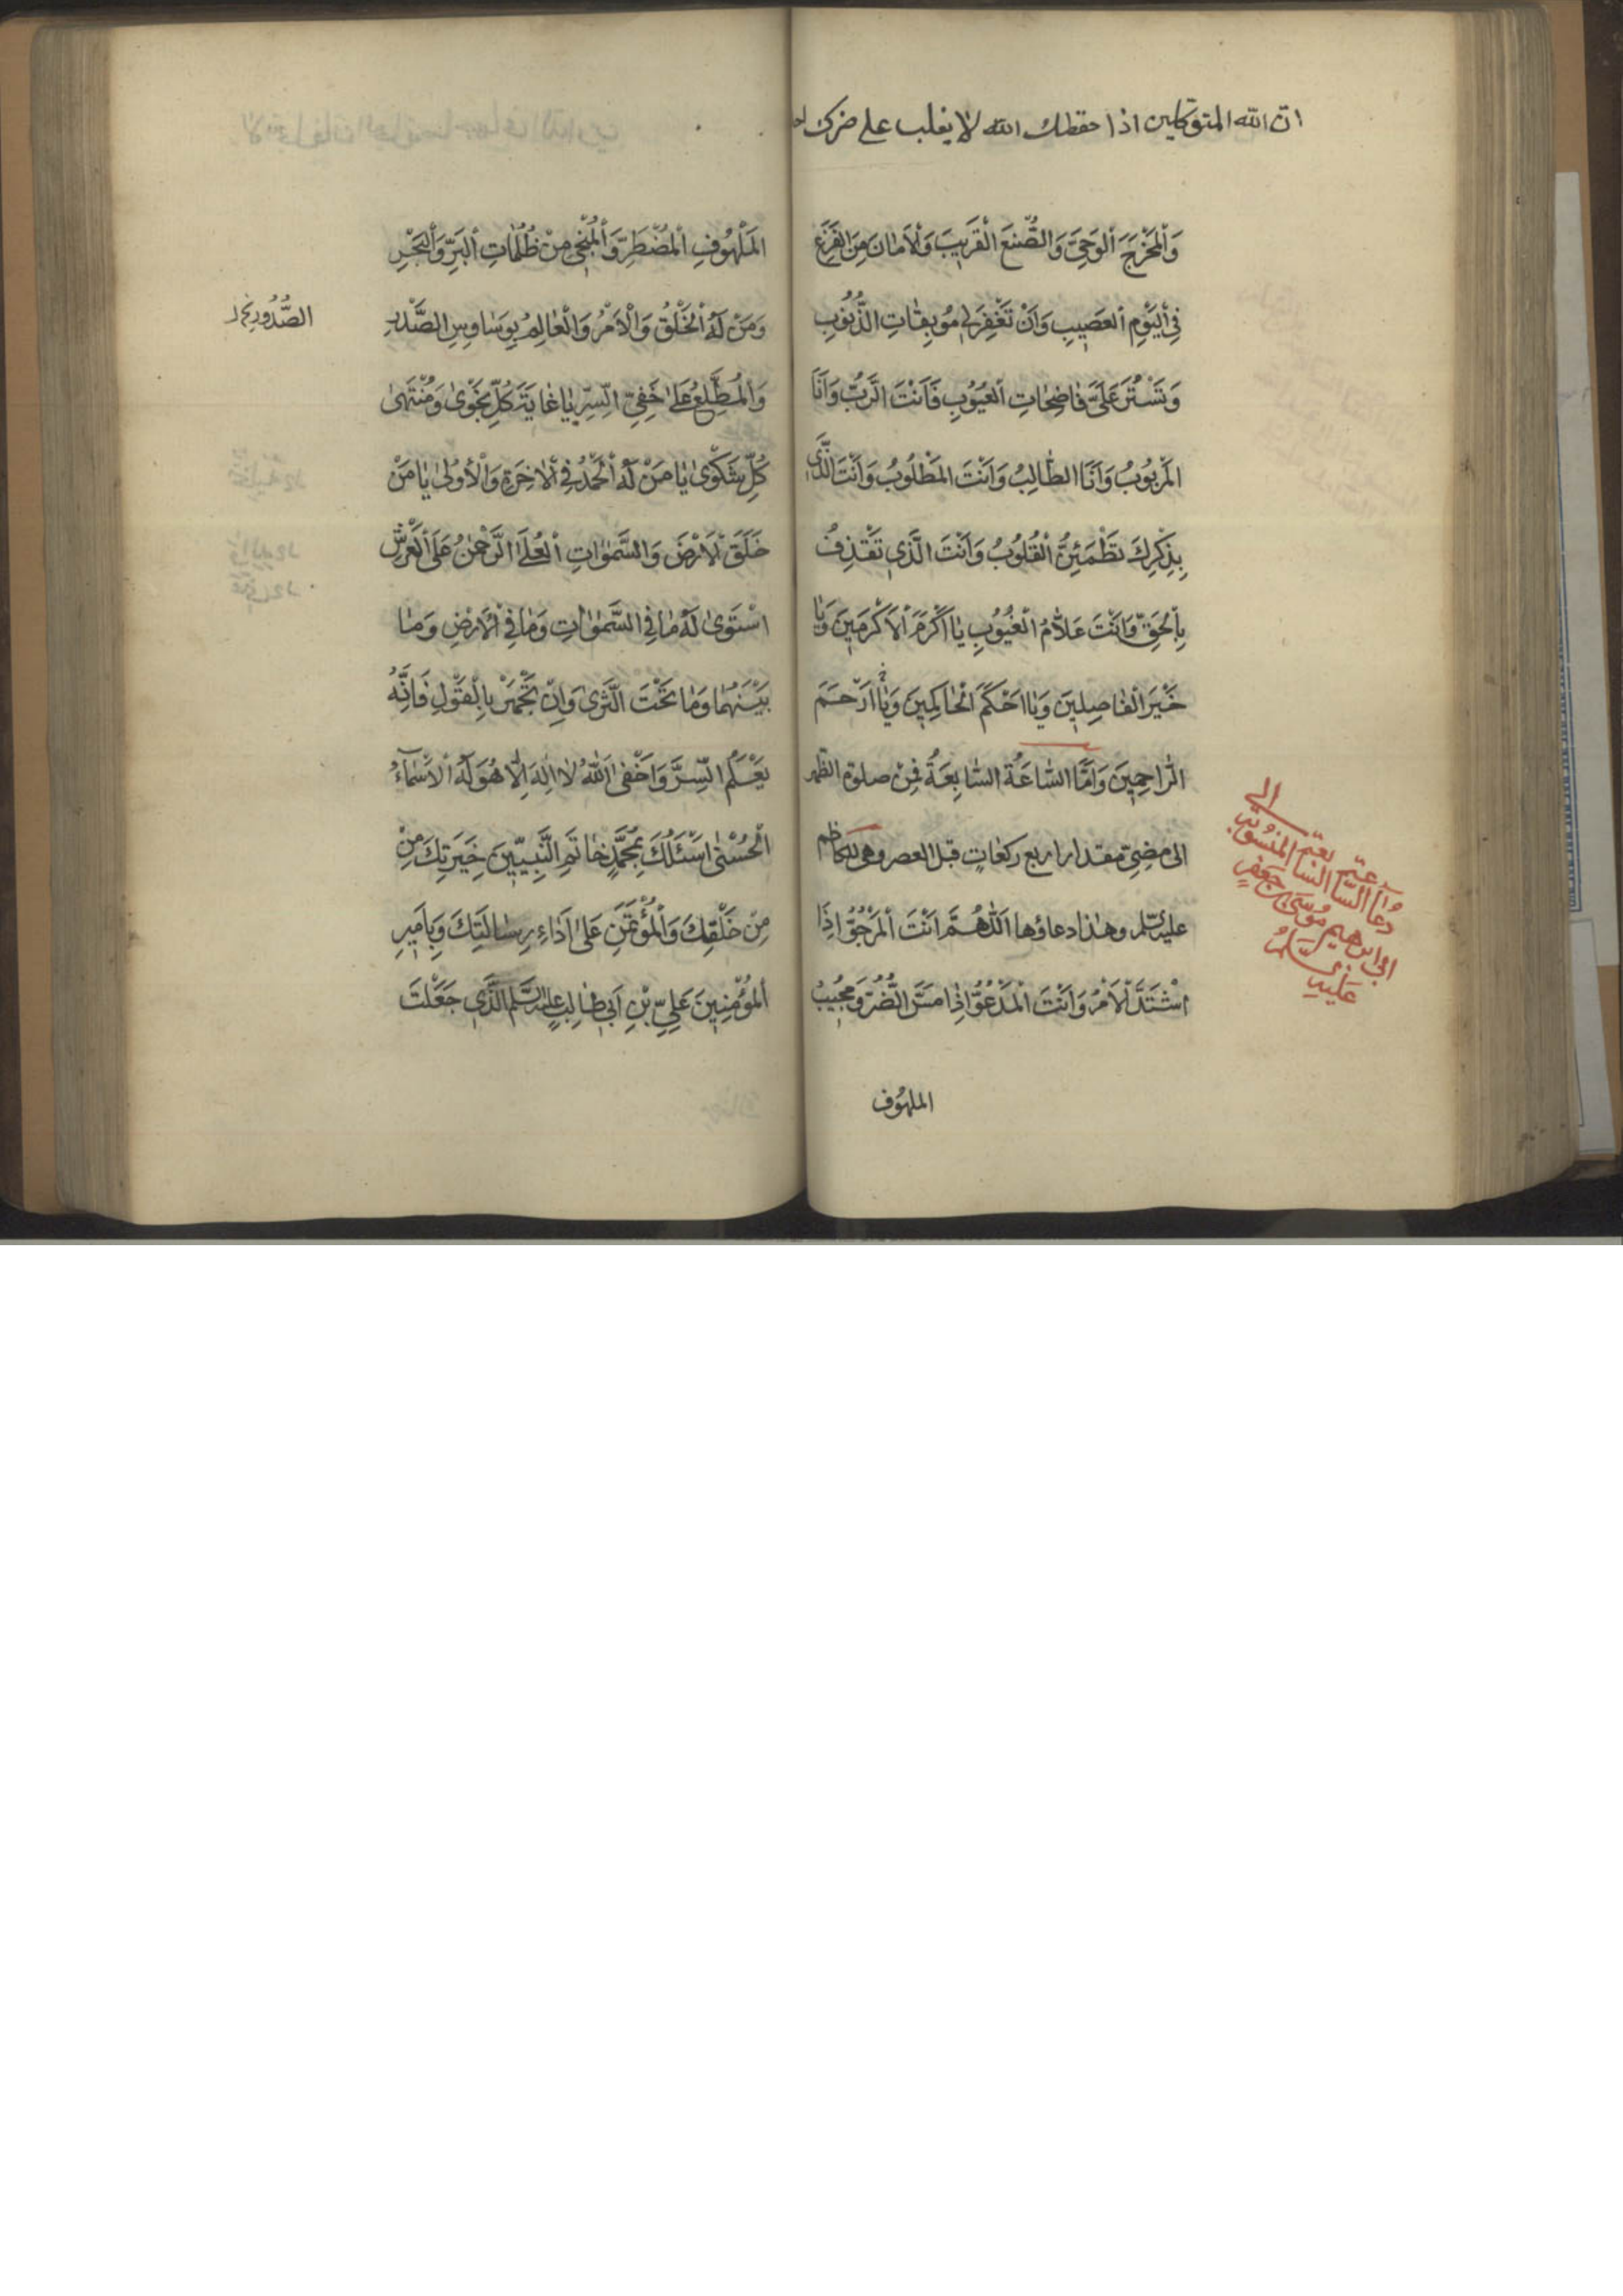 ان الله المتوكلين اذا حفظك الله لا يغلب على ضرك احد
وَالْمَخْرَجَ الْوَحِيَّ وَالصُّنْعَ الْقَرِيبَ وَالْاَمٰانَ مِنَ الْفَزَعِ
فِي الْيَوْمِ الْعَصِيبِ وَاَنْ تَغْفِرَ لِي مُوبِقٰاتِ الذُّنُوبِ
وَتَسْتُرَ عَلَيَّ فٰاضِحٰاتِ الْعُيُوبِ فَاَنْتَ الرَّبُّ وَاَنَا
الْمَرْبُوبُ وَاَنَا الطّٰالِبُ وَاَنْتَ الْمَطْلُوبُ وَاَنْتَ الَّذِي
بِذِكْرِكَ تَطْمَئِنُّ الْقُلُوبُ وَاَنْتَ الَّذِي تَقْذِفُ
بِالْحَقِّ وَاَنْتَ عَلّٰامُ الْغُيُوبِ يٰا اَكْرَمَ الْاَكْرَمِينَ وَيٰا
خَيْرَ الْفٰاصِلِينَ وَيٰا اَحْكَمَ الْحٰاكِمِينَ وَيٰا اَرْحَمَ
الرّٰاحِمِينَ وَاَمَّا السّٰاعَةُ السّٰابِعَةُ فَمِنْ صلوة الظهر
الى مضيّ مقدار اربع ركعات قبل العصر وهي للكاظم
عليه السلم وهذا دعاؤها اَللّٰهُمَّ اَنْتَ الْمَرْجُوُّ اِذَا
اشْتَدَّ الْاَمْرُ وَاَنْتَ الْمَدْعُوُّ اِذٰا مَسَّ الضُّرُّ وَمُجِيبُ
الملهوف
دعاء الساعة السابعة المنسوب الى
ابي ابرهيم موسى بن جعفر
عليه السلم
الْمَلْهُوفِ الْمُضْطَرِّ وَالْمُنْجِي مِنْ ظُلُمٰاتِ الْبَرِّ وَالْبَحْرِ
وَمَنْ لَهُ الْخَلْقُ وَالْاَمْرُ وَالْعٰالِمُ بِوَسٰاوِسِ الصَّدْرِ
الصُّدُورِ
وَالْمُطَّلِعُ عَلىٰ خَفِيِّ السِّرِّ يٰا غٰايَةَ كُلِّ نَجْوىٰ وَمُنْتَهىٰ
كُلِّ شَكْوىٰ يٰا مَنْ لَهُ الْحَمْدُ فِي الْاٰخِرَةِ وَالْاُولىٰ يٰا مَنْ
خَلَقَ الْاَرْضَ وَالسَّمٰوٰاتِ الْعُلىٰ الرَّحْمٰنُ عَلَى الْعَرْشِ
اسْتَوىٰ لَهُ مٰا فِي السَّمٰوٰاتِ وَمٰا فِي الْاَرْضِ وَمٰا
بَيْنَهُمٰا وَمٰا تَحْتَ الثَّرىٰ وَاِنْ تَجْهَرْ بِالْقَوْلِ فَاِنَّهُ
يَعْلَمُ السِّرَّ وَاَخْفىٰ اَللّٰهُ لٰا اِلٰهَ اِلّٰا هُوَ لَهُ الْاَسْمٰاءُ
الْحُسْنىٰ اَسْئَلُكَ بِمُحَمَّدٍ خٰاتَمِ النَّبِيِّينَ خِيَرَتِكَ مِنْ
مِنْ خَلْقِكَ وَالْمُؤْتَمَنِ عَلىٰ اَدٰاءِ رِسٰالَتِكَ وَبِاَمِيرِ
الْمُؤْمِنِينَ عَلِيِّ بْنِ اَبِي طٰالِبٍ عليه السلم الَّذِي جَعَلْتَ